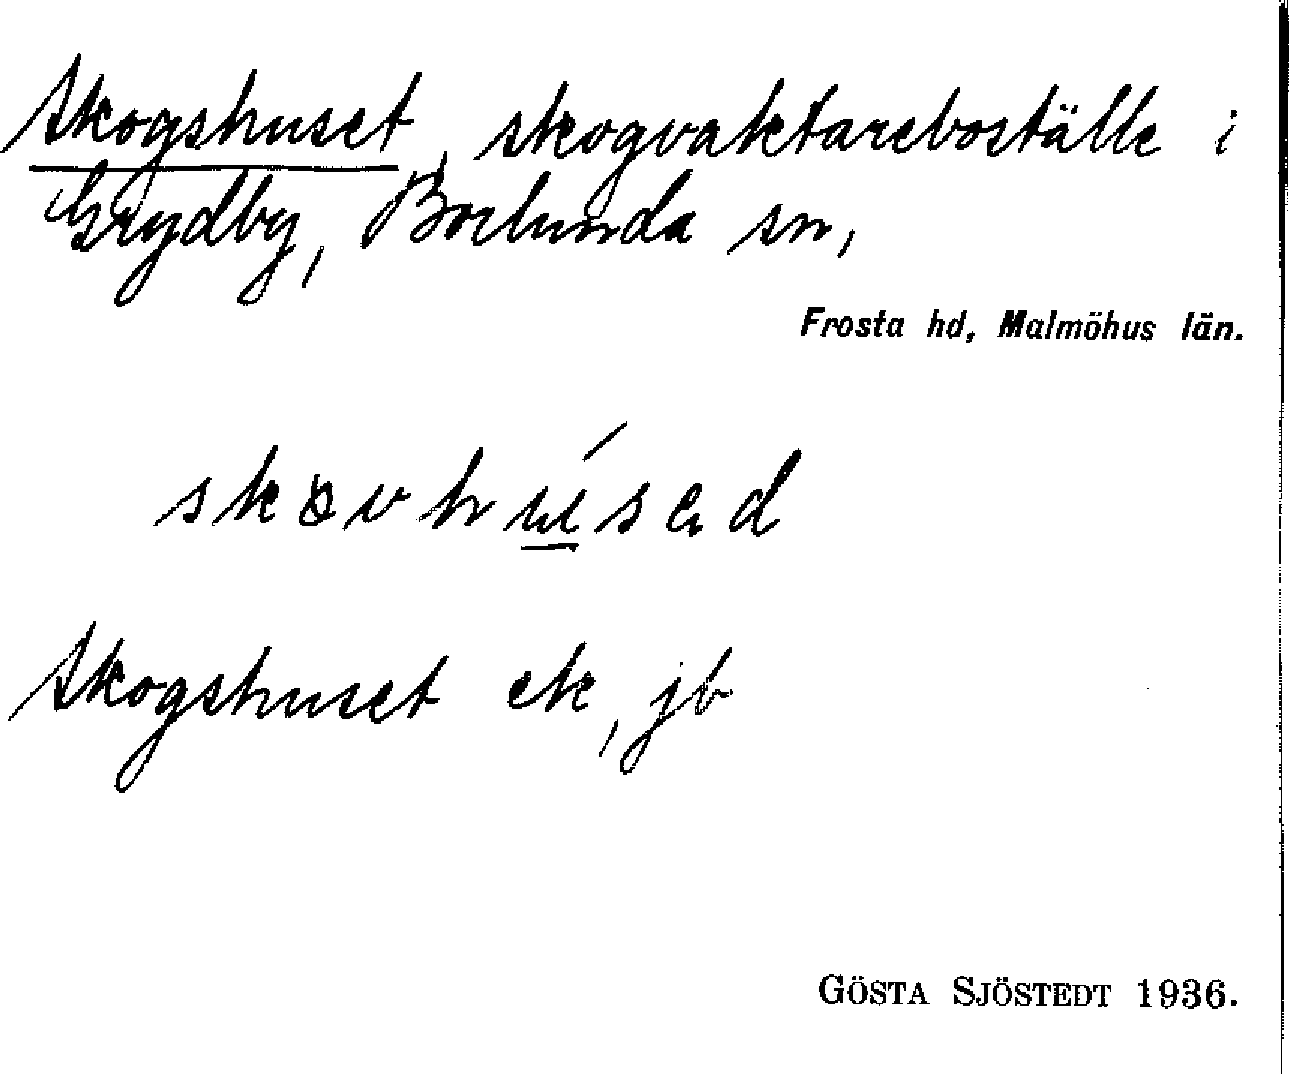 Skogshuset, skogvaktareboställe i
Grydby, Borlunda sn,
Frosta hd, Malmöhus län.
Skogshuset ek, jb
GÖSTA SJÖSTEDT 1936.